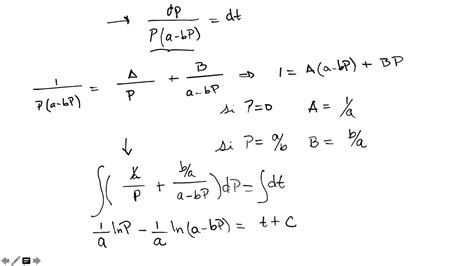 → dP/(P(a-bP)) = dt
1/(P(a-bP)) = A/P + B/(a-bP) ⇒ 1 = A(a-bP) + BP
si P=0 A = 1/a
si P = a/b B = b/a
↓
∫( (1/a)/P + (b/a)/(a-bP) ) dP = ∫dt
1/a lnP - 1/a ln(a-bP) = t + C